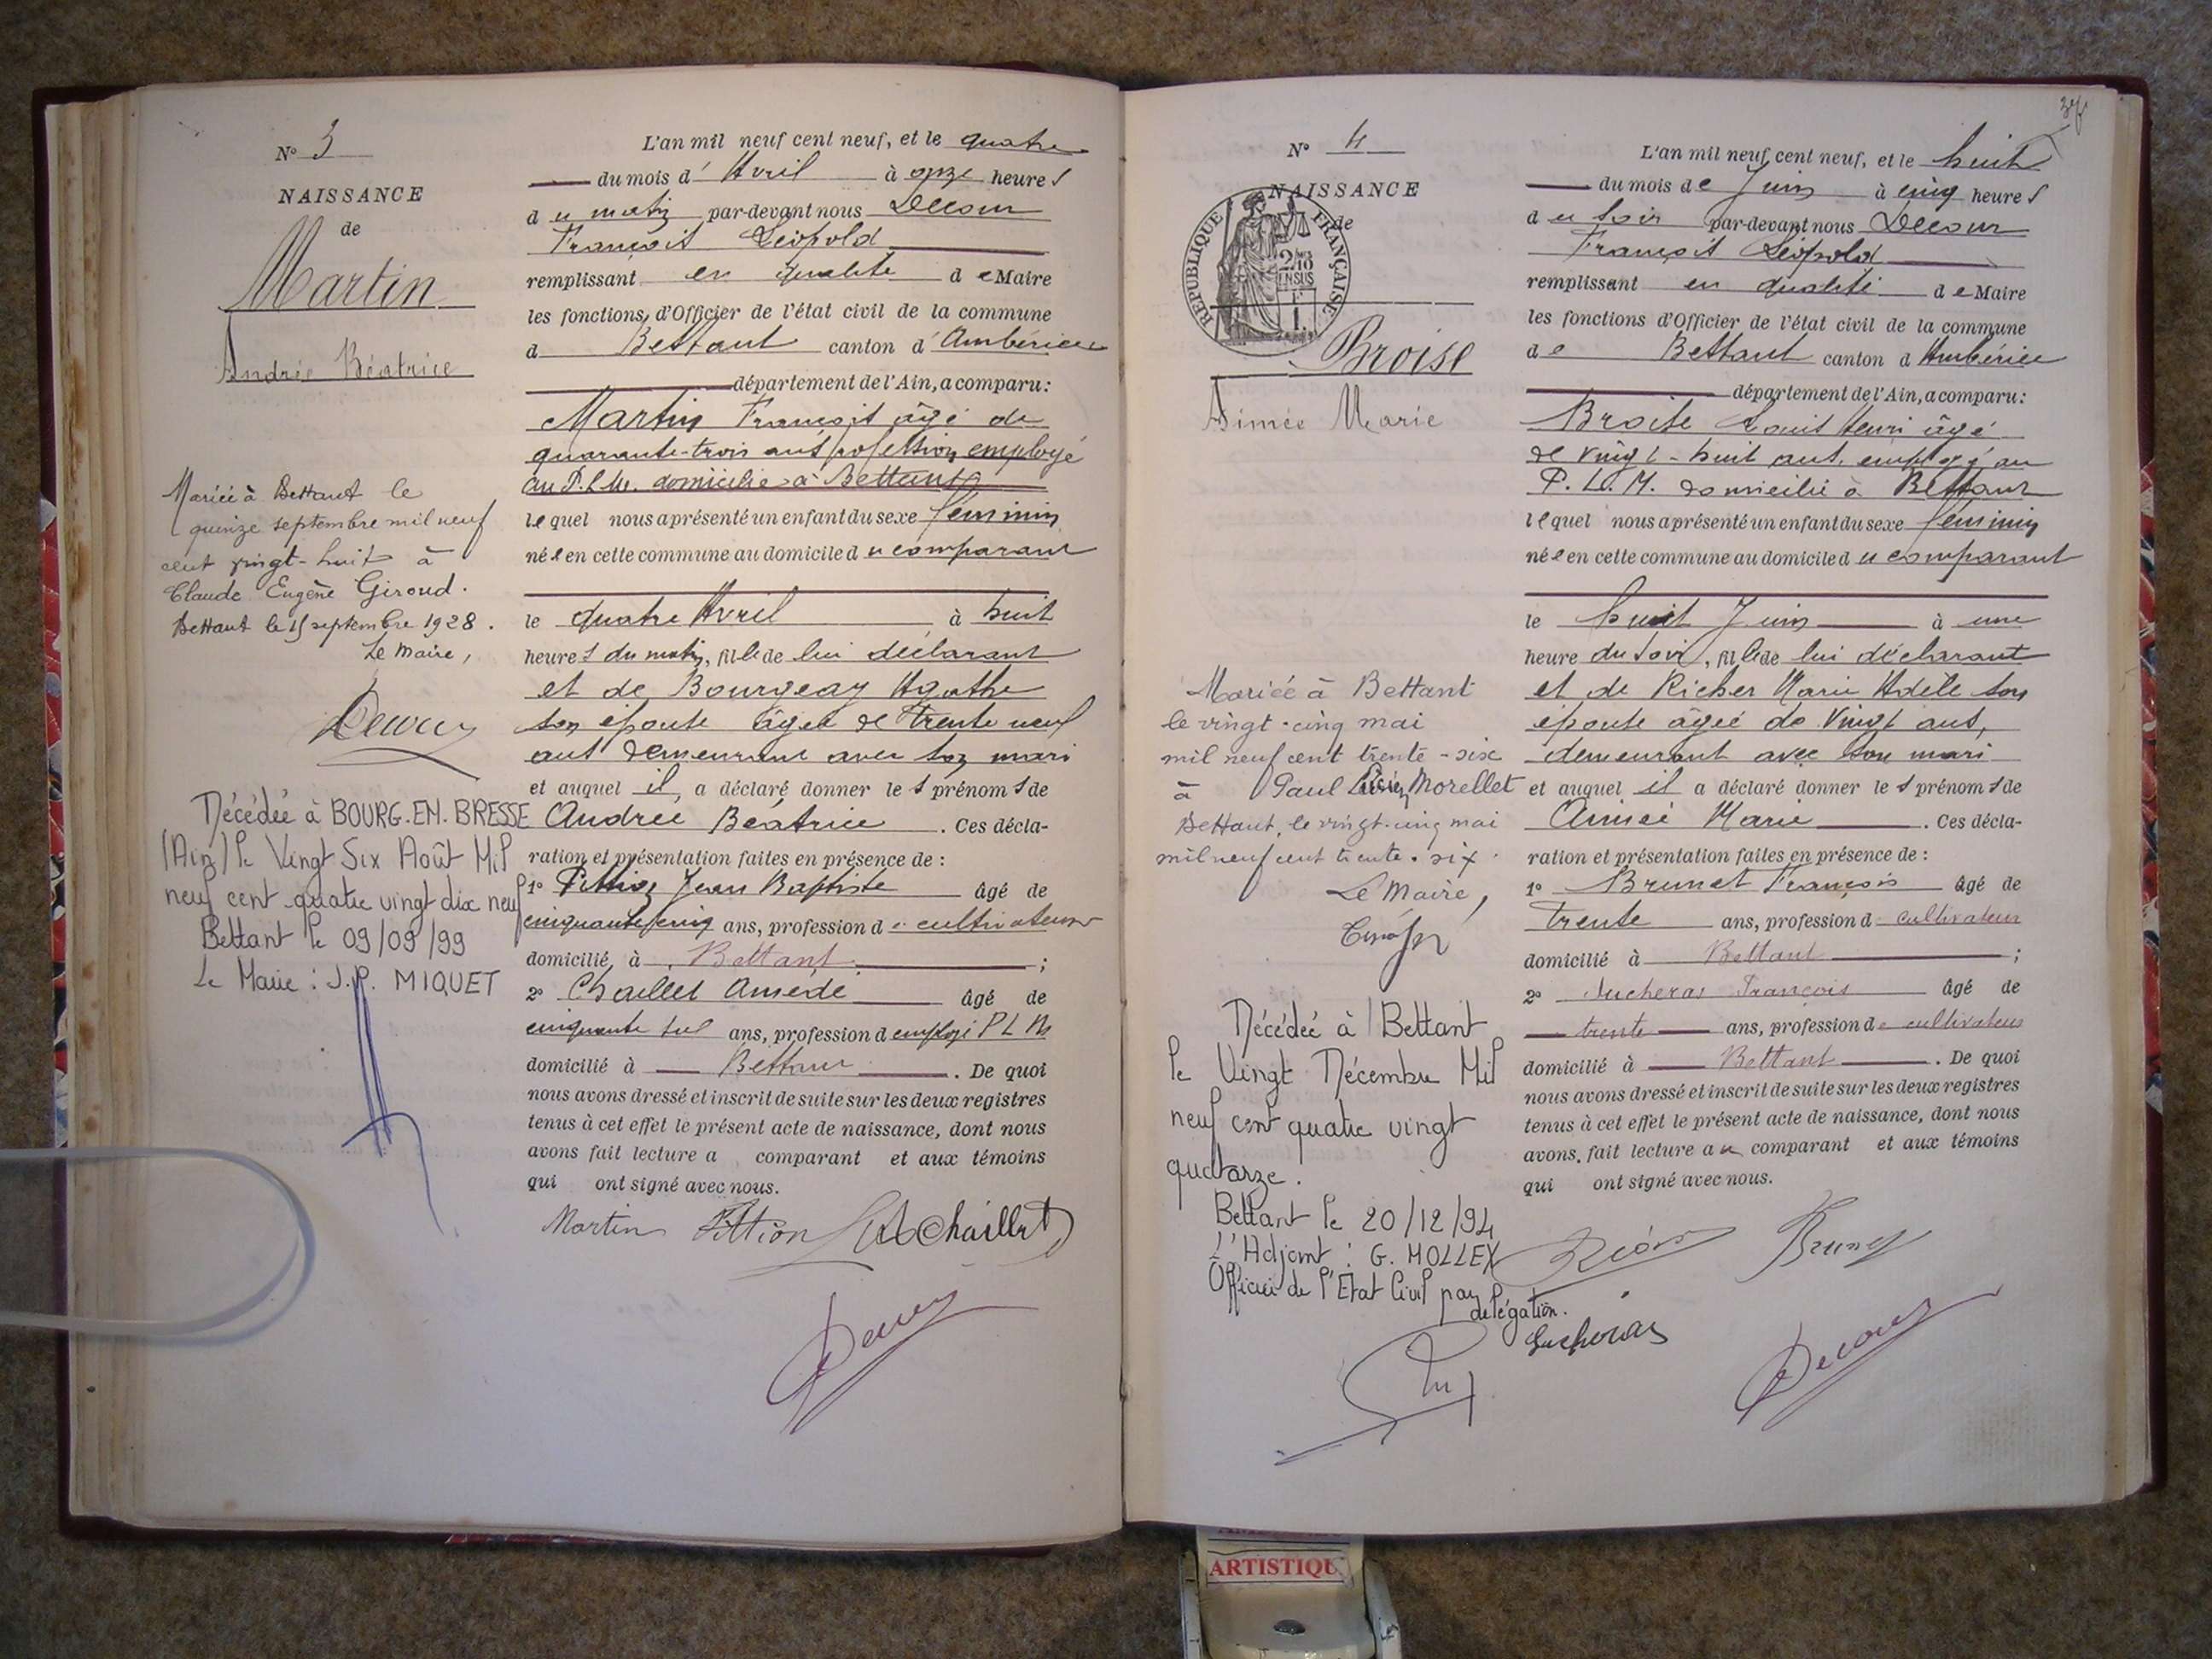 N° 3
NAISSANCE
de
Martin
Andrée Béatrice
Mariée à Bettant le
quinze septembre mil neuf
cent vingt-huit à
Claude Eugène Giroud.
Bettant le 15 septembre 1928.
Le Maire,
Decour
Décédée à BOURG.EN.BRESSE
(Ain) le Vingt Six Août Mil
neuf cent quatre vingt dix neuf
Bettant le 09/09/99
Le Maire : J.P. MIQUET
L'an mil neuf cent neuf, et le quatre
du mois d'Avril à onze heures
du matin par-devant nous Decour
François Léopold
remplissant en qualité de Maire
les fonctions d'Officier de l'état civil de la commune
d Bettant canton d'Ambérieu
département de l'Ain, a comparu :
Martin François âgé de
quarante-trois ans profession employé
au P.L.M. domicilié à Bettant
lequel nous a présenté un enfant du sexe féminin
née en cette commune au domicile du comparant
le quatre Avril à huit
heures du matin, fille de lui déclarant
et de Bourgeay Agathe
son épouse âgée de trente neuf
ans demeurant avec son mari
et auquel il a déclaré donner les prénoms de
Andrée Béatrice. Ces décla-
ration et présentation faites en présence de :
1° Pittion Jean Baptiste âgé de
cinquante cinq ans, profession de cultivateur
domicilié à Bettant ;
2° Chaillet Amédé âgé de
cinquante ans, profession d employé P L M
domicilié à Bettant. De quoi
nous avons dressé et inscrit de suite sur les deux registres
tenus à cet effet le présent acte de naissance, dont nous
avons fait lecture a comparant et aux témoins
qui ont signé avec nous.
Martin Pittion Chaillet
Decour
37
N° 4
NAISSANCE
de
REPUBLIQUE FRANÇAISE
Broise
Aimée Marie
Mariée à Bettant
le vingt-cinq mai
mil neuf cent trente-six
à Paul Lucien Morellet
Bettant, le vingt-cinq mai
mil neuf cent trente-six.
Le Maire,
Décédée à Bettant
le Vingt Décembre Mil
neuf cent quatre vingt
quatorze.
Bettant le 20/12/94
L'Adjoint : G. MOLLEX
Officier de l'Etat Civil par
délégation.
L'an mil neuf cent neuf, et le huit
du mois de Juin à cinq heures
du soir par-devant nous Decour
François Léopold
remplissant en qualité de Maire
les fonctions d'Officier de l'état civil de la commune
de Bettant canton d Ambérieu
département de l'Ain, a comparu :
Broise Louis Henri âgé
de vingt-huit ans, employé au
P.L.M. domicilié à Bettant
lequel nous a présenté un enfant du sexe féminin
née en cette commune au domicile du comparant
le huit Juin à une
heure du soir, fille de lui déclarant
et de Richer Marie Adèle son
épouse âgée de vingt ans,
demeurant avec son mari
et auquel il a déclaré donner les prénoms de
Aimée Marie. Ces décla-
ration et présentation faites en présence de :
1° Brunet François âgé de
trente ans, profession d cultivateur
domicilié à Bettant ;
2° Lucheras François âgé de
trente ans, profession de cultivateur
domicilié à Bettant. De quoi
nous avons dressé et inscrit de suite sur les deux registres
tenus à cet effet le présent acte de naissance, dont nous
avons fait lecture au comparant et aux témoins
qui ont signé avec nous.
Brunet
Lucheras
Decour
ARTISTIQU